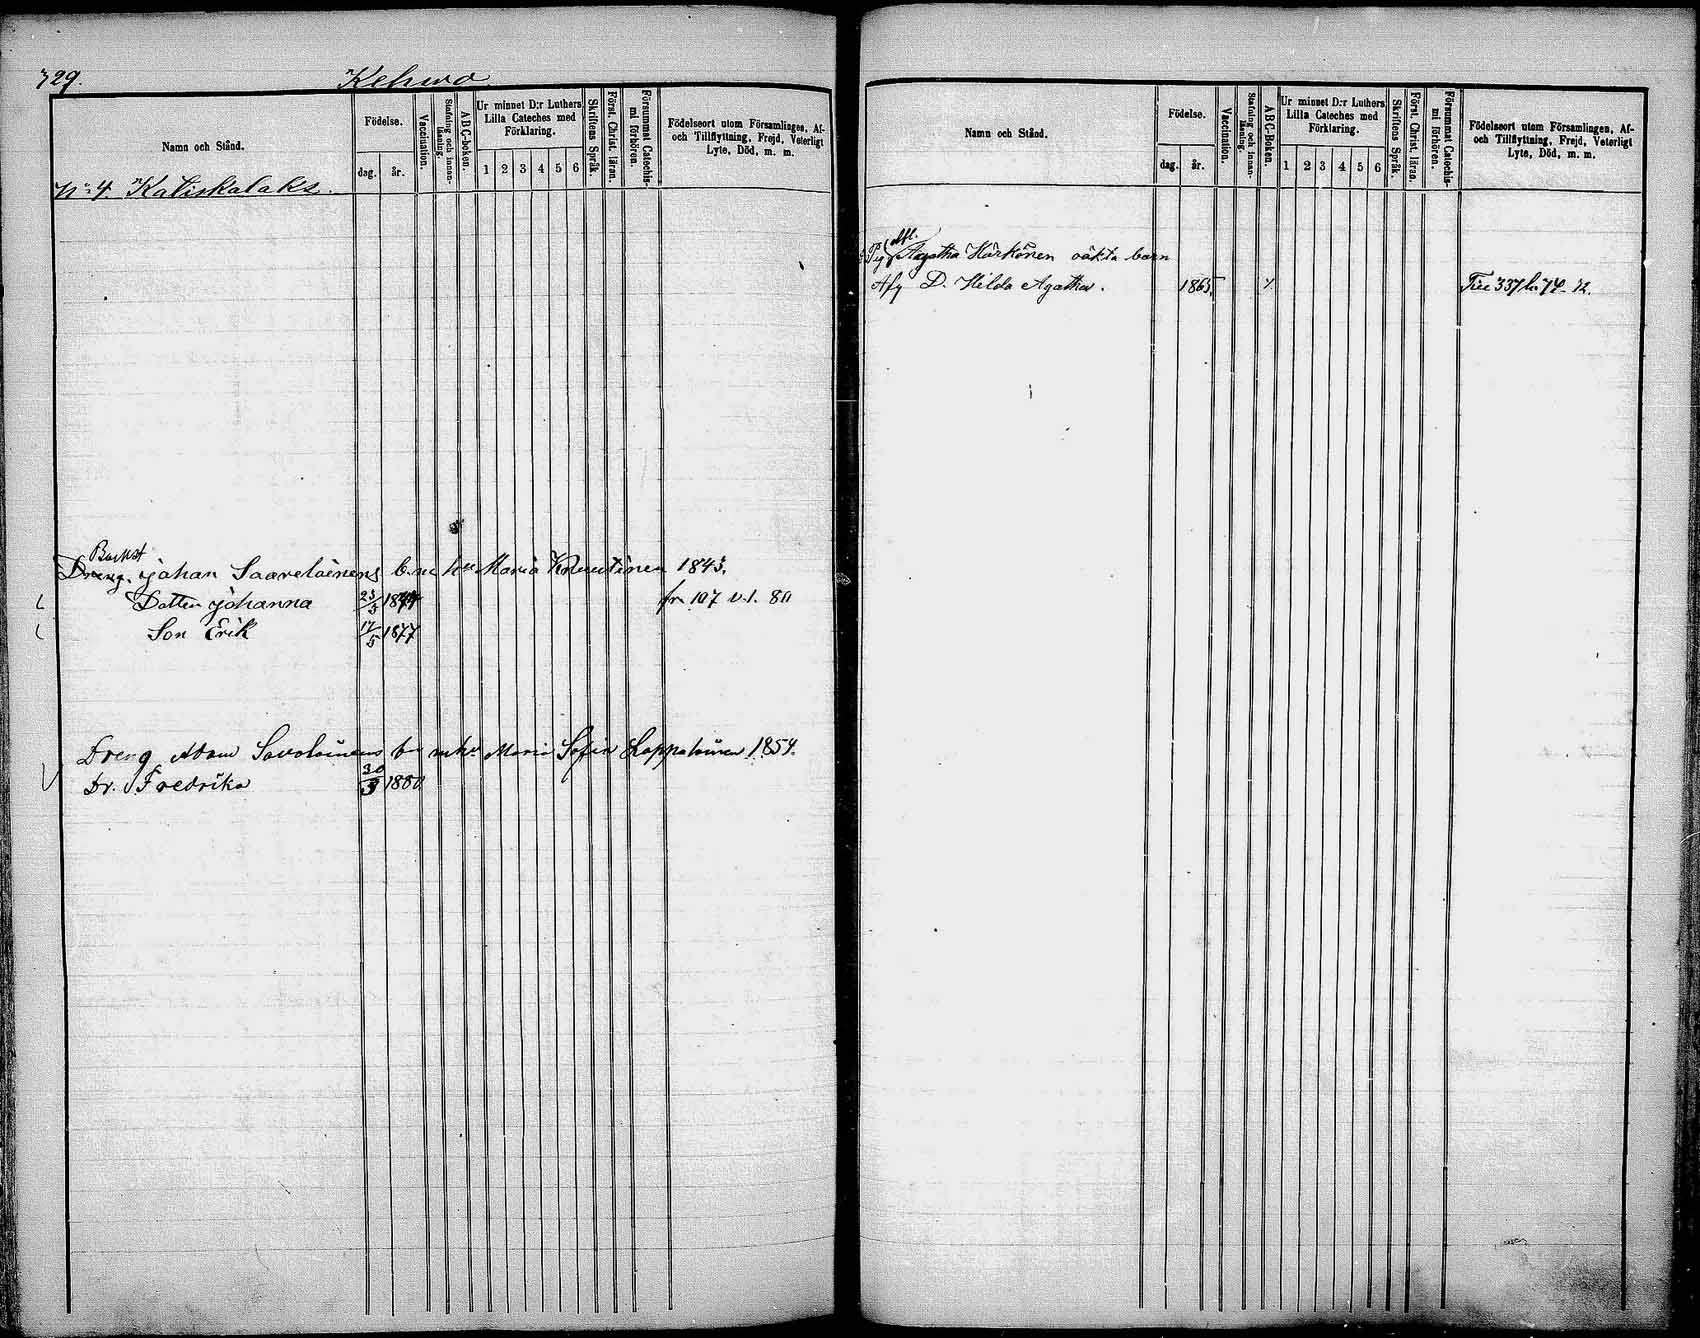 729. Kehwo
Namn och Stånd.
Födelse.
dag. år.
Vaccination.
Stafning och innanläsning.
ABC-boken.
Ur minnet D:r Luthers Lilla Cateches med Förklaring.
1 2 3 4 5 6
Skriftens Språk.
Först. Christ. läran.
Försummat Catechismi förhören.
Födelseort utom Församlingen, Af- och Tillflyttning, Frejd, Veterligt Lyte, Död, m. m.
No 4. Katiskalaks.
Johan Saarelainens b. m. hu Maria Knuutinen 1843.
Dotter Johanna 23/5 1874 fr 107 v. 1. 80
Son Erik 17/5 1877
Dreng Adam Savolainens bn mhu Maria Sofia Loppalainen 1854.
Dr. Fredrika 30/3 1880
Namn och Stånd.
Födelse.
dag. år.
Vaccination.
Stafning och innanläsning.
ABC-Boken.
Ur minnet D:r Luthers Lilla Cateches med Förklaring.
1 2 3 4 5 6
Skriftens Språk.
Först. Christ. läran.
Försummat Catechismi förhören.
Födelseort utom Församlingen, Af- och Tillflyttning, Frejd, Veterligt Lyte, Död, m. m.
afl.
Pig Agatha Hörkönen oäkta barn
Afg D. Hilda Agatha. 1865.